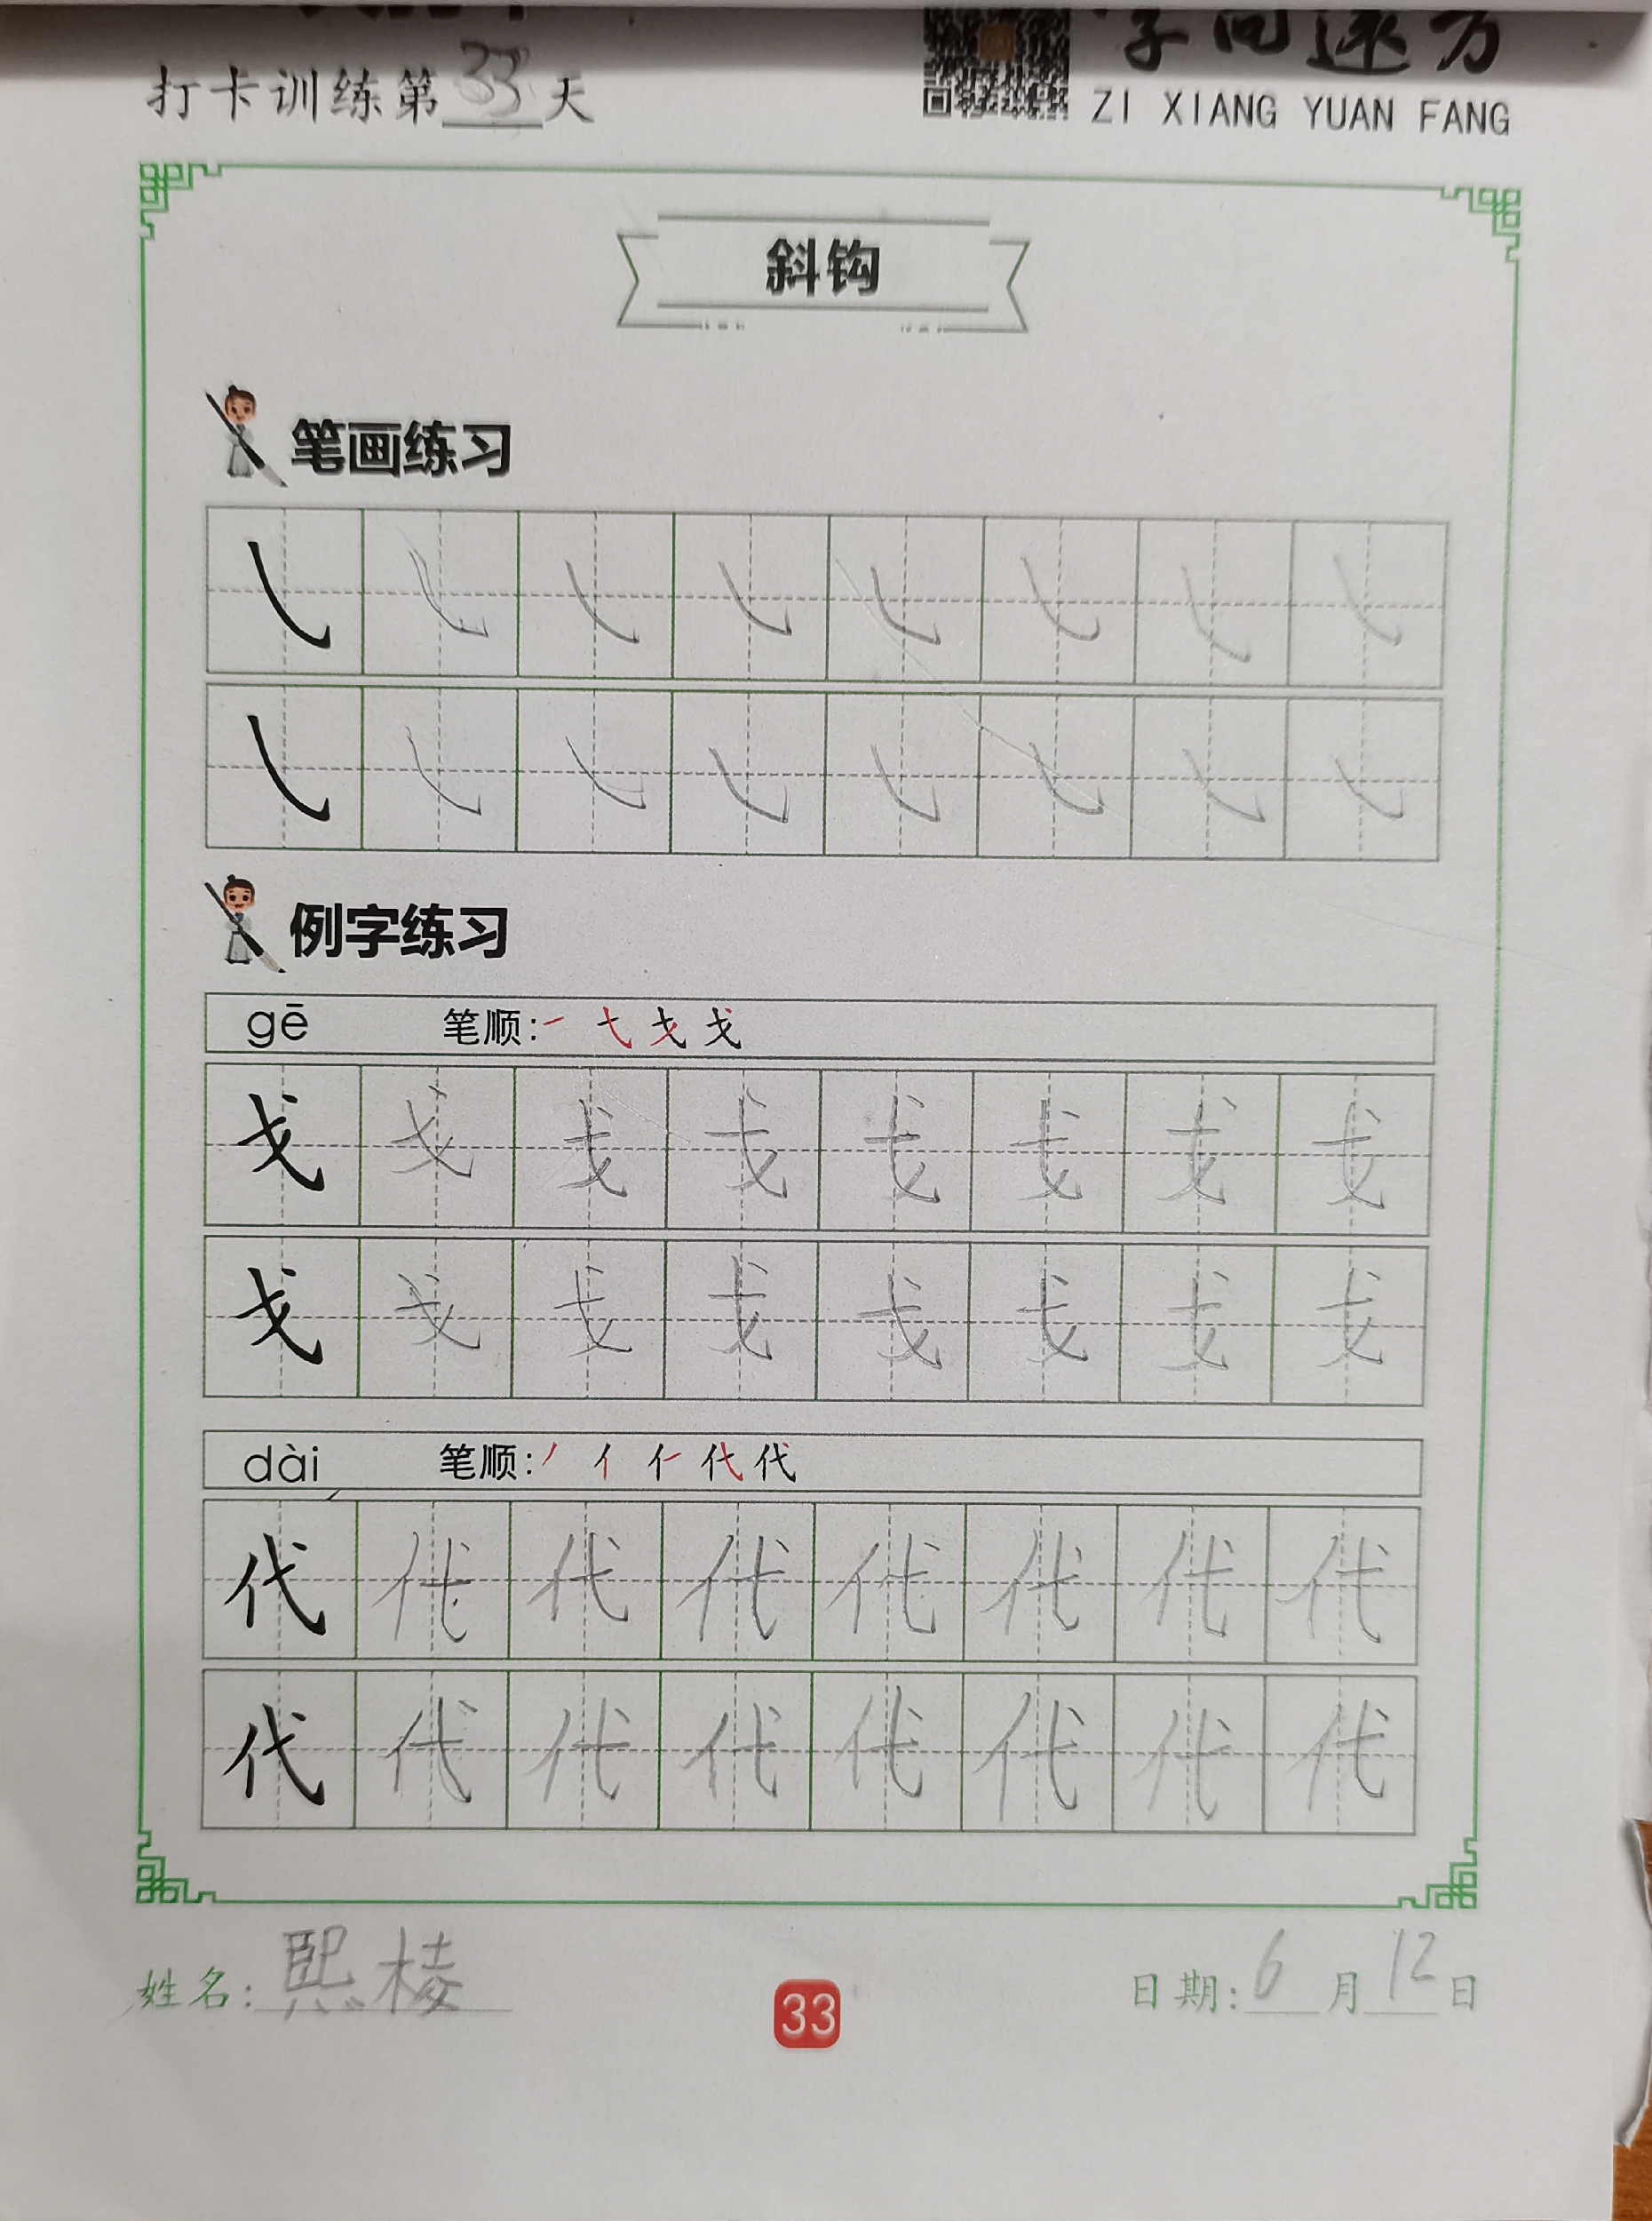 打卡训练第33天
ZI XIANG YUAN FANG
斜钩
笔画练习
㇂ ㇂ ㇂ ㇂ ㇂ ㇂ ㇂ ㇂
㇂ ㇂ ㇂ ㇂ ㇂ ㇂ ㇂ ㇂
例字练习
gē 笔顺: ㇀ 弋 戈 戈
戈 戈 戈 戈 戈 戈 戈 戈
戈 戈 戈 戈 戈 戈 戈 戈
dài 笔顺: 丿 亻 代 代
代 代 代 代 代 代 代 代
代 代 代 代 代 代 代 代
姓名: 熙棱
日期: 6月12日
33